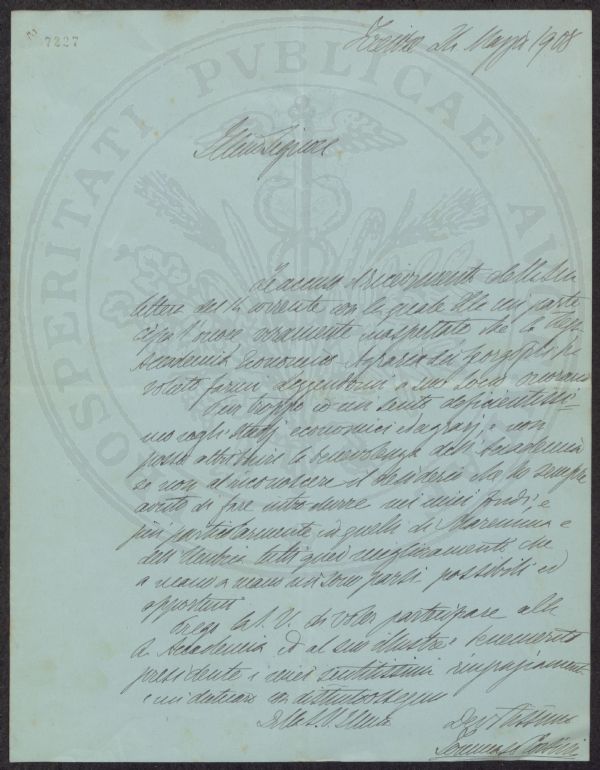 7227
24 Maggio 1908
PROSPERITATI PVBLICAE AV
Illmo Signore
Le accuso ricevimento della Sua
lettera del corrente con la quale Ella mi parte
cipa l'onore veramente inaspettato che la
Accademia Economico Agraria dei Georgofili ha
voluto farmi eleggendomi a suo socio onorario
Pur troppo io mi sento deficientissi-
mo negli studj economici ed agrarj, e non
posso attribuire la benevolenza dell'Accademia
se non al riconoscere il desiderio che ho sempre
avuto di fare introdurre nei miei fondi, e
più particolarmente in quelli di Maremma e
dell'Umbria tutti quei miglioramenti che
a mano a mano mi sono parsi possibili ed
opportuni
Prego la S. V. di voler partecipare alla
R. Accademia ed al suo illustre e benemerito
presidente i miei sentitissimi ringraziamenti
e mi dichiaro con distinto ossequio
Della S. V. Illma
Devmo